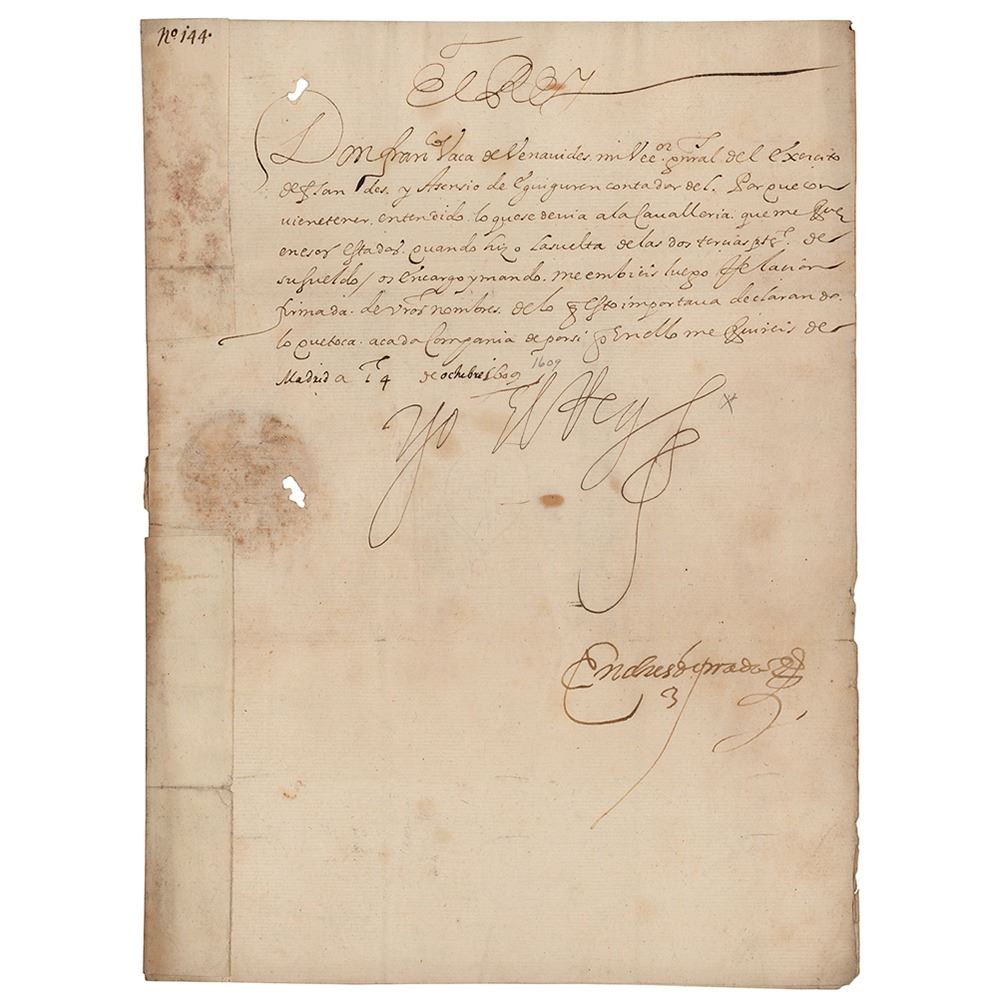 No 144.
El Rey
Don fran.co Vaca de Venauides. mi Vee.or gnral del Exercito
de flandes. y Asensio de Eguiguren contador del. Porque con
viene tener. entendido. lo que se deuia a la Caualleria. que me
en esos estados. quando hizo la suelta de las dos tercias de
su sueldo / os encargo y mando. me embieis luego Relacion
firmada. de vros nombres. de lo q esto importaua declarando.
lo que toca. a cada Compania de por si q en ello me seruireis de
Madrid a 14 de octubre 1609 1609
Yo El Rey
Andres de prada